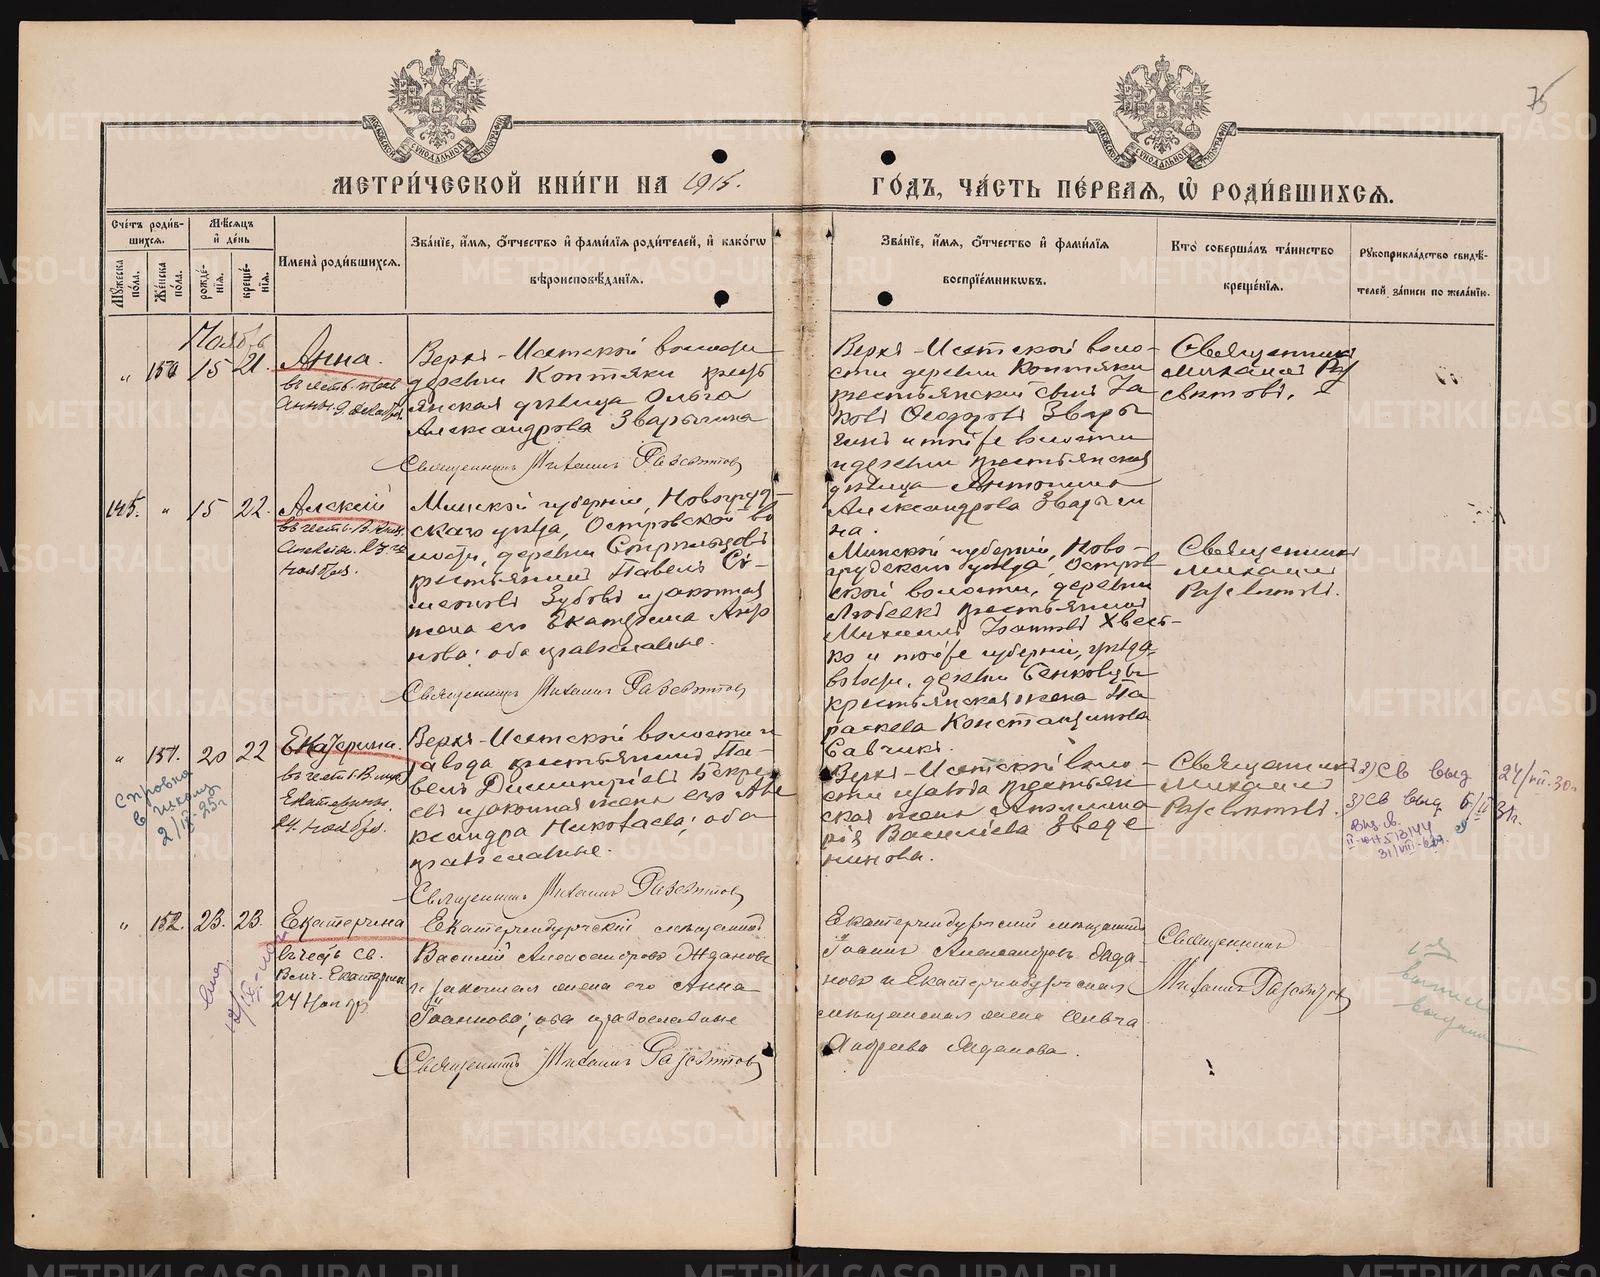 75
МЕТРИ́ЧЕСКОЙ КНИ́ГИ НА 1915.
ГО́ДЪ, ЧА́СТЬ ПЕ́РВАЯ, Ѽ РОДИ́ВШИХСЯ.
Сче́тъ роди́вшихся.
Му́жеска по́ла.
Же́нска по́ла.
Мѣ́сяцъ и҆ де́нь
рожде́нїя.
креще́нїя.
Имена̀ роди́вшихся.
Зва́нїе, и҆́мя, ѻ҆́тчество и҆ фами́лїя роди́телей, и҆ како́гѡ
вѣроисповѣ́данїя.
Зва́нїе, и҆́мя, ѻ҆́тчество и҆ фами́лїя
воспрїе́мникѡвъ.
Кто̀ соверша́лъ та́инство
креще́нїя.
Рꙋкоприкла́дство свидѣ́-
телей за́писи по жела́нїю.
Ноябрь
" 150 15 21
Анна.
въ честь прав.
Анны 9 декабря.
Верхъ-Исетской волости
деревни Коптяки кресть
янская дѣвица Ольга
Александрова Зварыгина
Священникъ Михаилъ Разсвѣтовъ
Верхъ-Исетской воло-
сти деревни Коптяки
крестьянскій сынъ Іа
ковъ Ѳеодоровъ Звары
гинъ и той же волости
и деревни крестьянская
дѣвица Антонина
Александрова Зварыги
на.
Священникъ
Михаилъ Раз
свѣтовъ.
145. " 15 22.
Алексій
въ честь
ноября.
Минской губерніи, Новогруд-
скаго уѣзда, Островской во
лости, деревни
крестьянинъ Павелъ Си-
меоновъ Зубовъ и законная
жена его Екатерина
оба православные.
Священникъ Михаилъ Разсвѣтовъ
Минской губерніи, Ново-
грудскаго уѣзда, Остров-
ской волости, деревни
крестьянинъ
Михаилъ Хвесь-
ко и той же губерніи, уѣзда,
волости, деревни Сенковцы
крестьянская жена Па
раскева Константинова
Савчикъ.
Священникъ
Михаилъ
Разсвѣтовъ.
" 151. 20 22
Екатерина.
въ честь Вмуч
Екатерины.
24 ноября.
Справка
в школу
2/IX-25г
Верхъ-Исетской волости и
завода крестьянинъ Па-
велъ Димитріевъ
и законная жена его Але
ксандра Николаева; оба
православные.
Священникъ Михаилъ Разсвѣтовъ
Верхъ-Исетской воло-
сти и завода крестьян
ская жена Аполлина
рія Васильева
Священникъ
Михаилъ
Разсвѣтовъ.
2) Св выд 24/VII-30г
3) Св выд 31г.
" 152. 23. 23.
Екатерина
въ честь Св.
Влмч. Екатерины
24 Ноября
Екатеринбургскій мѣщанинъ
Василій Александровъ Ждановъ
и законная жена его Анна
Іоаннова; оба православные
Священникъ Михаилъ Разсвѣтовъ
Екатеринбургскій мѣщанинъ
Іоаннъ Александровъ Жда-
новъ и Екатеринбургская
мѣщанская жена Ольга
Андреева Жданова.
Священникъ
Михаилъ Разсвѣтовъ